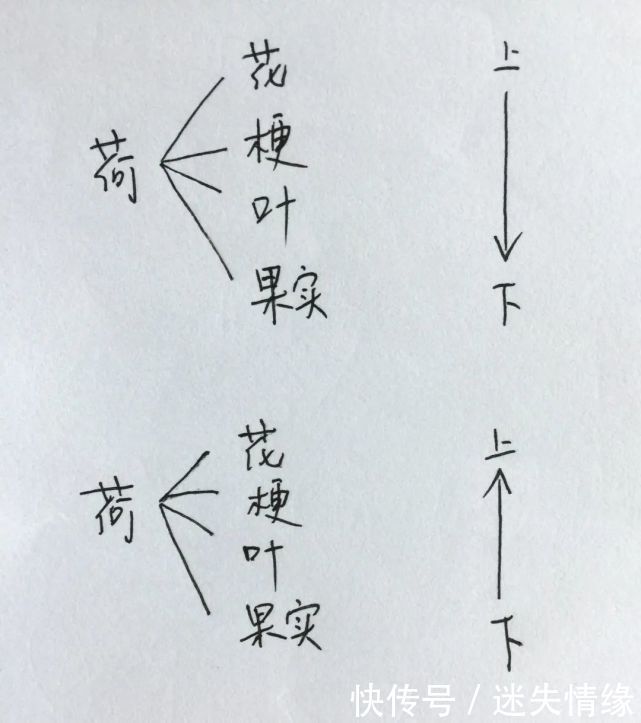 花 上
梗
荷
叶
果实 下
花 上
梗
荷
叶
果实 下
快传号 / 迷失情缘